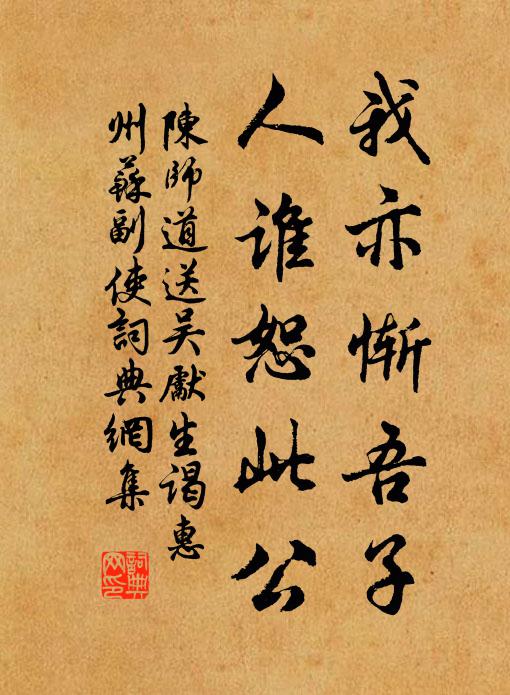 我亦慚吾子
人誰恕此公
陳師道送吴獻生謁惠
州蘇副使詞典網集
詞典网印